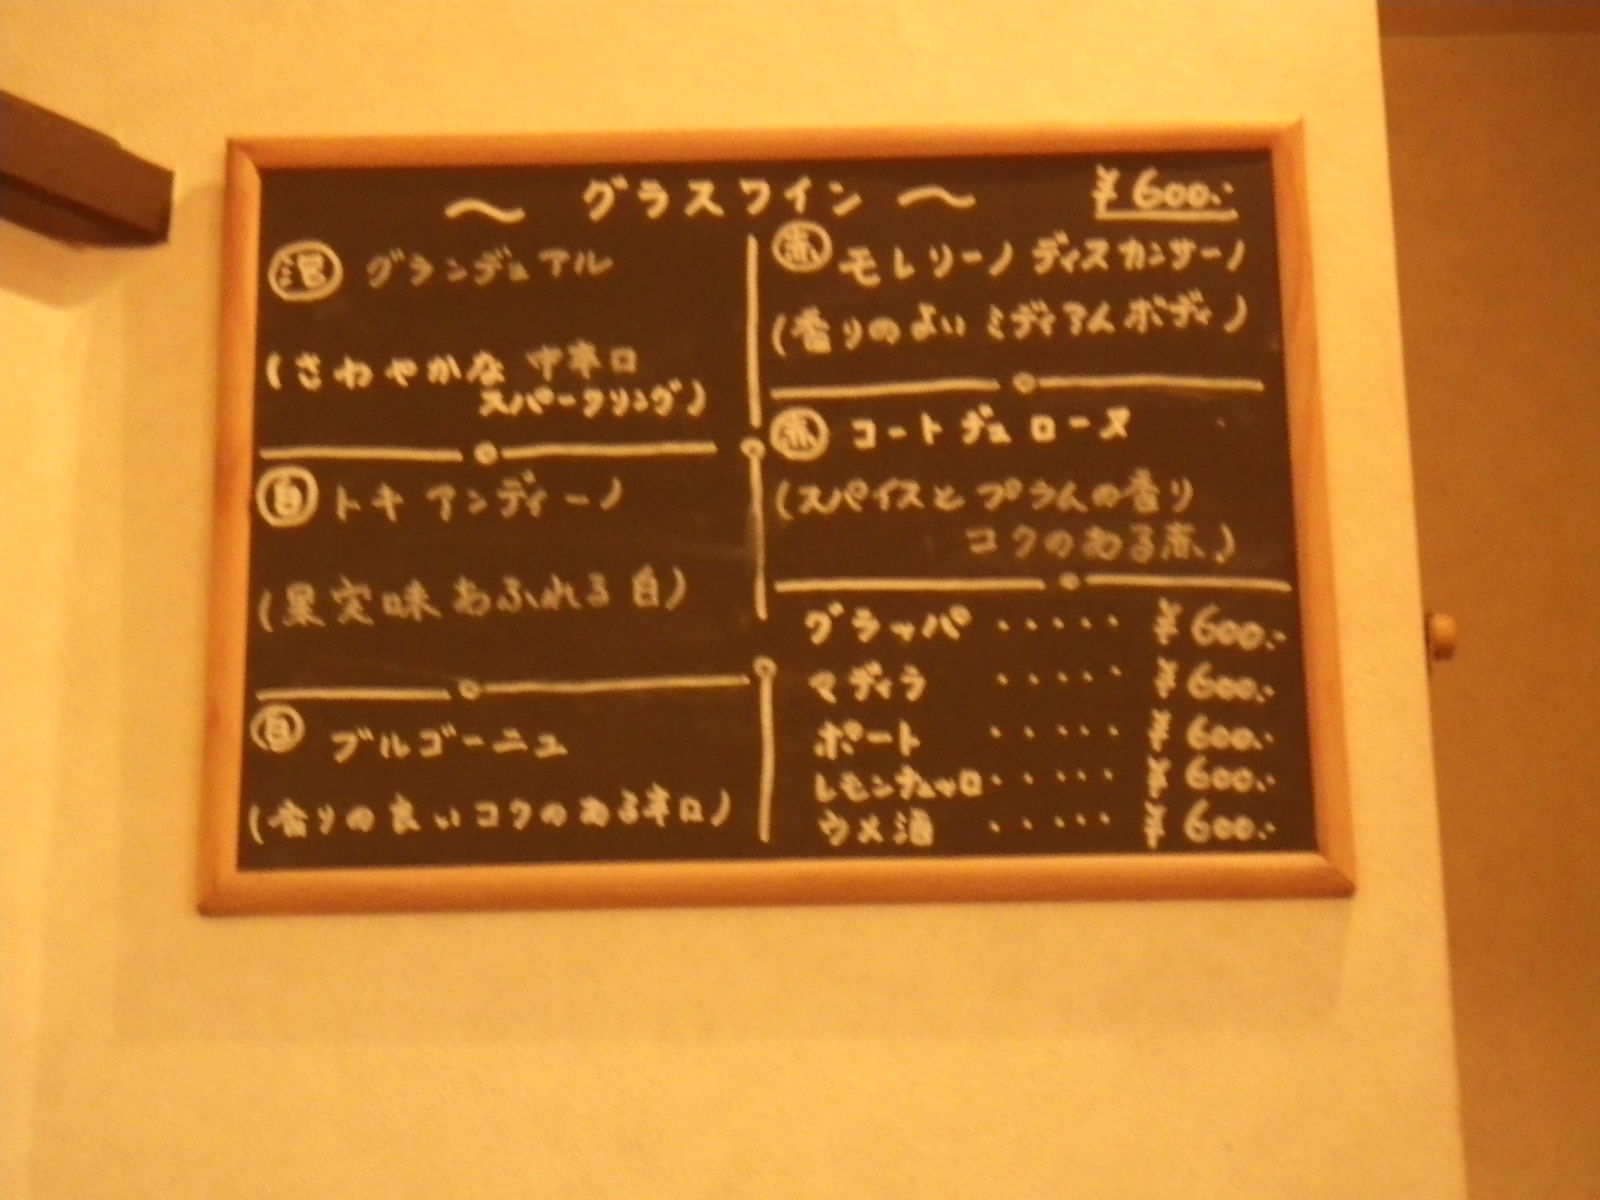 〜 グラスワイン 〜 ¥600.-
泡 グランデュアル
(さわやかな 中辛口
スパークリング)
白 トキ アンディーノ
(果実味あふれる白)
白 ブルゴーニュ
(香りの良いコクのある辛口)
赤 モレリーノ ディスカンサーノ
(香りのよい ミディアム ボディ)
赤 コート デュ ローヌ
(スパイスと プラムの香り
コクのある赤)
グラッパ ・・・・・ ¥600.-
マディラ ・・・・・ ¥600.-
ポート ・・・・・ ¥600.-
レモンチェッロ ・・・・・ ¥600.-
ウメ酒 ・・・・・ ¥600.-